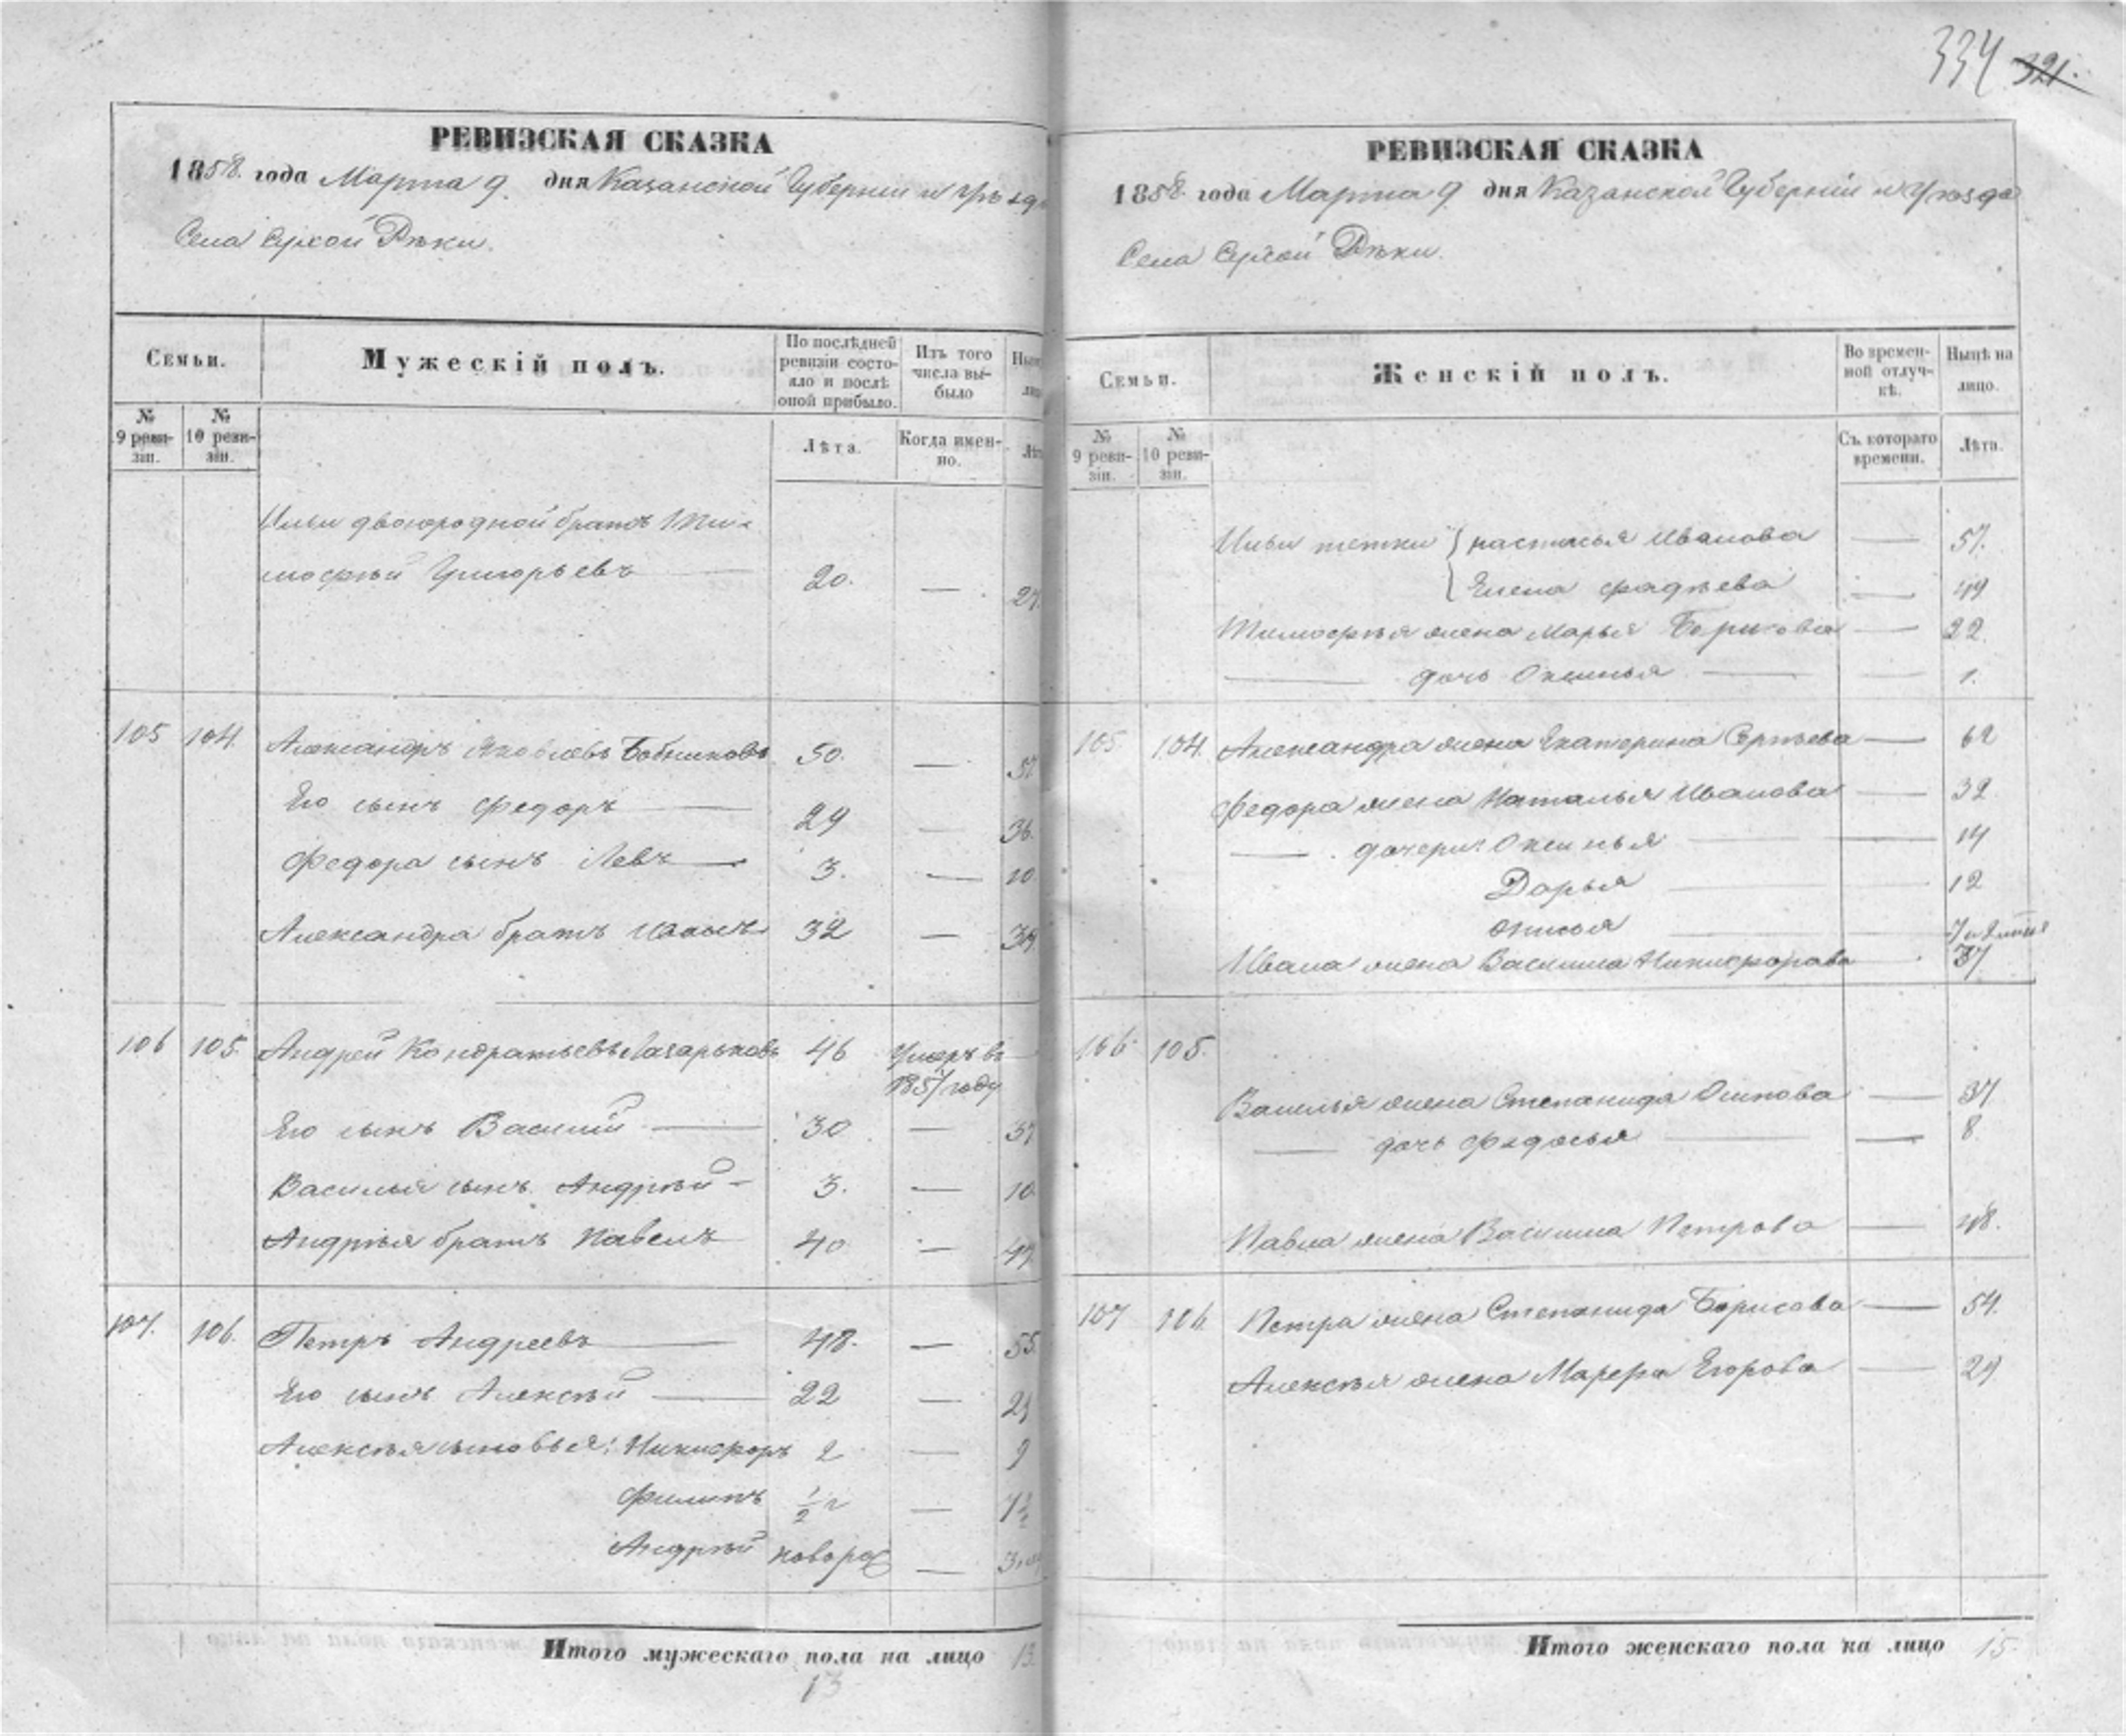 334 321.
РЕВИЗСКАЯ СКАЗКА
1858. года Марта 9. дня Казанской Губернии и Уѣзда
Села Сухой Рѣки.
Семьи.
Мужескій полъ.
По послѣдней ревизіи состояло и послѣ оной прибыло.
Изъ того числа выбыло
№ 9 ревизіи.
№ 10 ревизіи.
Лѣта.
Когда именно.
Ильи двоюродной братъ Ти-
мофѣй Григорьевъ 20. — 27.
105 104. Александръ Яковлевъ Бобниковъ 50. — 57
Его сынъ Федоръ 29 — 36.
Федора сынъ Левъ 3. — 10
Александра братъ Иванъ 32 — 39
106 105. Андрей Кондратьевъ Лазарьковъ 46 Умеръ въ
1857 году
Его сынъ Василій 30 — 37
Василья сынъ Андрѣй 3. — 10
Андрѣя братъ Павелъ 40 — 47
107. 106. Петръ Андреевъ 48. — 55.
Его сынъ Алексѣй 22 — 29
Алексѣя сыновья: Никифоръ 2 — 9
Филипъ ½ г — 7½
Андрѣй новорож —
Итого мужескаго пола на лицо 13.
13
РЕВИЗСКАЯ СКАЗКА
1858. года Марта 9 дня Казанской Губерніи и Уѣзда
Села Сухой Рѣки.
Семьи.
Женскій полъ.
Во временной отлучкѣ.
Нынѣ на лицо.
№ 9 ревизіи.
№ 10 ревизіи.
Съ котораго времени.
Лѣта.
Ильи тетки Настасья Иванова — 57.
Елена Фадѣева — 49
Тимофѣя жена Марья Борисова — 22.
— дочь Оксинья — 1.
105 104. Александра жена Екатерина Сергѣева — 62
Федора жена Наталья Иванова — 32
— дочери: Оксинья — 14
Дарья — 12
Анисья —
Ивана жена Василиса Никифорова 37
106 105.
Василья жена Степанида Осипова — 37
— дочь Федосья — 8.
Павла жена Василиса Петрова — 48.
107 106. Петра жена Степанида Борисова — 54.
Алексѣя жена Марфа Егорова — 29
Итого женскаго пола на лицо 15.